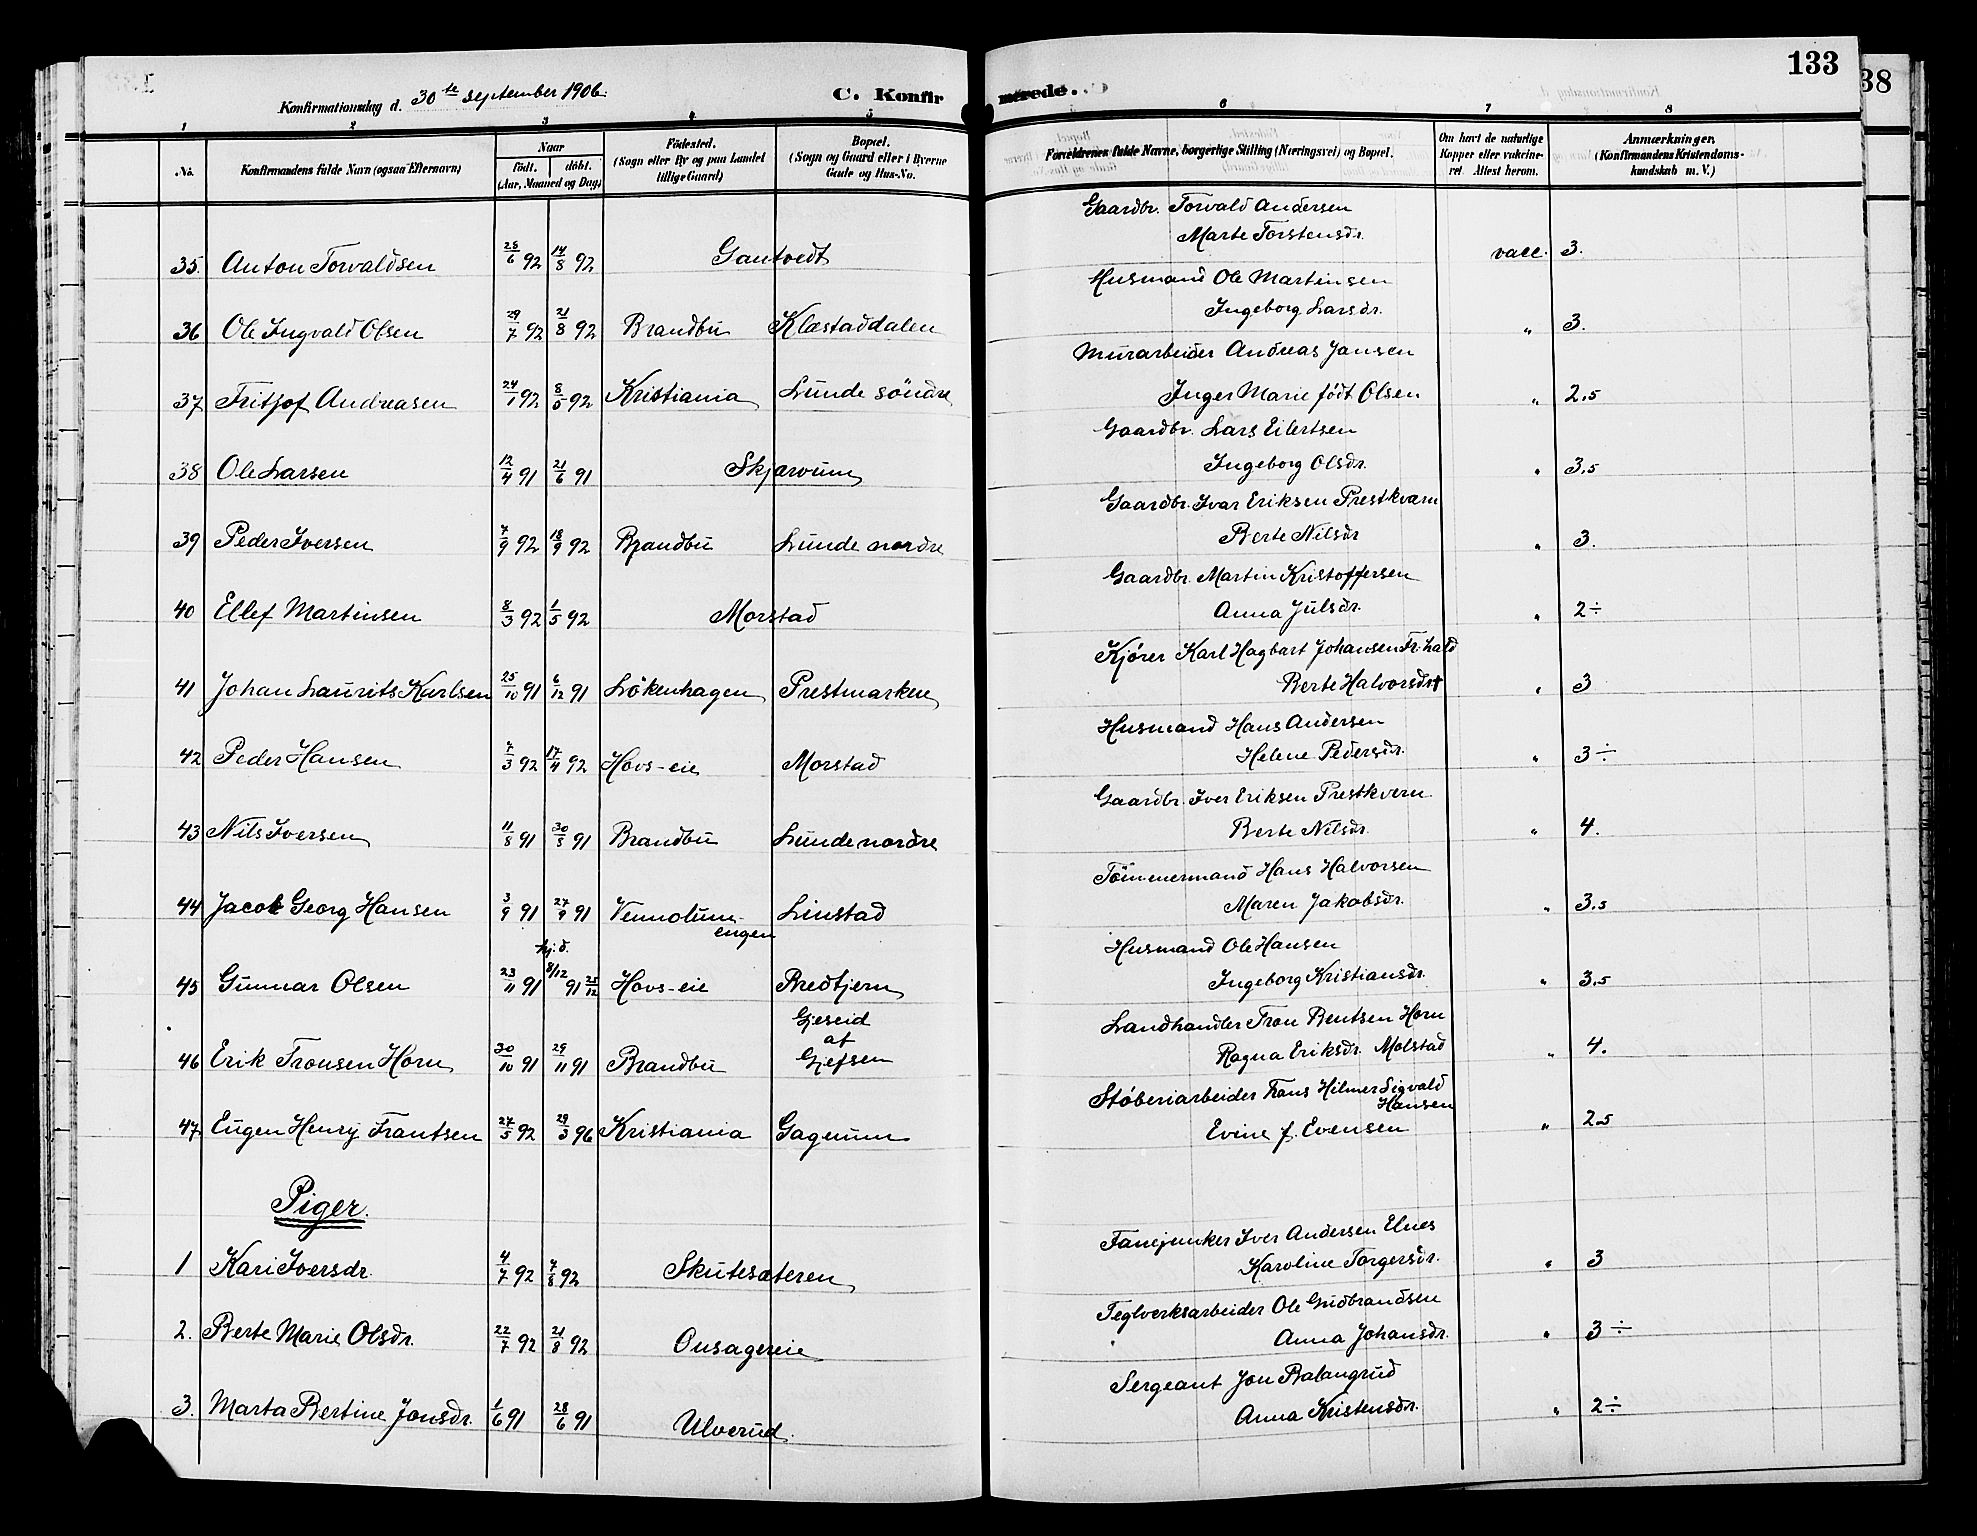 133
38
Konfirmationsdag d. 30te september 1906.
C. Konfirmerede.
1 2 3 4 5 6 7 8
No.
Konfirmandens fulde Navn (ogsaa Efternavn)
Naar
født. døbt.
(Aar, Maaned og Dag)
Fødested.
(Sogn eller By og paa Landet
tillige Gaard)
Bopæl.
(Sogn og Gaard eller i Byerne
Gade og Hus-No.
Forældrenes fulde Navne, borgerlige Stilling (Næringsvei) og Bopæl.
Om havt de naturlige
Kopper eller vakcine-
ret. Attest herom.
Anmærkninger.
(Konfirmandens Kristendoms-
kundskab m. V.)
Gaardbr. Torvald Andersen
Marte Torstensdr.
35. Anton Torvaldsen 28/6 92 14/8 92 Gamtvedt vacc. 3.
Husmand Ole Martinsen
Ingeborg Larsdr.
36 Ole Ingvald Olsen 29/7 92 21/8 92 Brandbu Klæstaddalen " 3.
Murarbeider Andreas Jansen
Inger Marie født Olsen
37 Fritjof Andreasen 24/1 92 8/5 92 Kristiania Lunde söndre " 2.5
Gaardbr. Lars Eilertsen
Ingeborg Olsdr.
38 Ole Larsen 12/4 91 21/6 91 Skjervum " 3.5
Gaardbr. Ivar Eriksen Prestkvern
Berte Nilsdr
39 Peder Iversen 7/9 92 18/9 92 Brandbu Lunde nordre " 3.
Gaardbr. Martin Kristoffersen
Anna Julsdr.
40 Ellef Martinsen 8/3 92 1/5 92 Morstad " 2÷
Kjører Karl Hagbart Johansen Fr.hald
Berte Halvorsdr†
41 Johan Laurits Karlsen 25/10 91 6/12 91 Lökenhagen Prestmarken " 3
Husmand Hans Andersen
Helene Pedersdr.
42 Peder Hansen 7/3 92 17/4 92 Hovs-eie Morstad " 3÷
Gaardbr. Iver Eriksen Prestkvern
Berte Nilsdr.
43 Nils Iversen 11/8 91 30/8 91 Brandbu Lunde nordre " 4.
Tömmermand Hans Halvorsen
Maren Jakobsdr.
44 Jacob Georg Hansen 3/9 91 27/9 91 Vennolum-
engen Linstad " 3.5
Husmand Ole Hansen
Ingeborg Kristiansdr.
45 Gunnar Olsen 23/11 91 hj.d. 8/12 91 25/12 Hovs-eie Bredtjern " 3.5
Landhandler Tron Bentsen Horn
Ragna Eriksdr. Molstad
46 Erik Tronsen Horn 30/10 91 29/11 91 Brandbu Gjeseid
af
Gjefsen " 4.
Støberiarbeider Frans Hilmer Sigvald
Hansen
Evine f. Evensen
47 Eugen Henry Frantsen 27/5 92 29/3 96 Kristiania Gagnum " 2.5
Piger.
Fanejunker Iver Andersen Elnes
Karoline Torgersdr.
1 Kari Iversdr. 4/7 92 7/8 92 Skutesæteren " 3
Teglverksarbeider Ole Gudbrandsen
Anna Johansdr.
2. Berte Marie Olsdr. 22/7 92 21/8 92 Onsagereie " 3÷
Sergeant Jon Balangrud
Anna Kristensdr.
3. Marta Bertine Jonsdr. 1/6 91 28/6 91 Ulverud. " 2÷